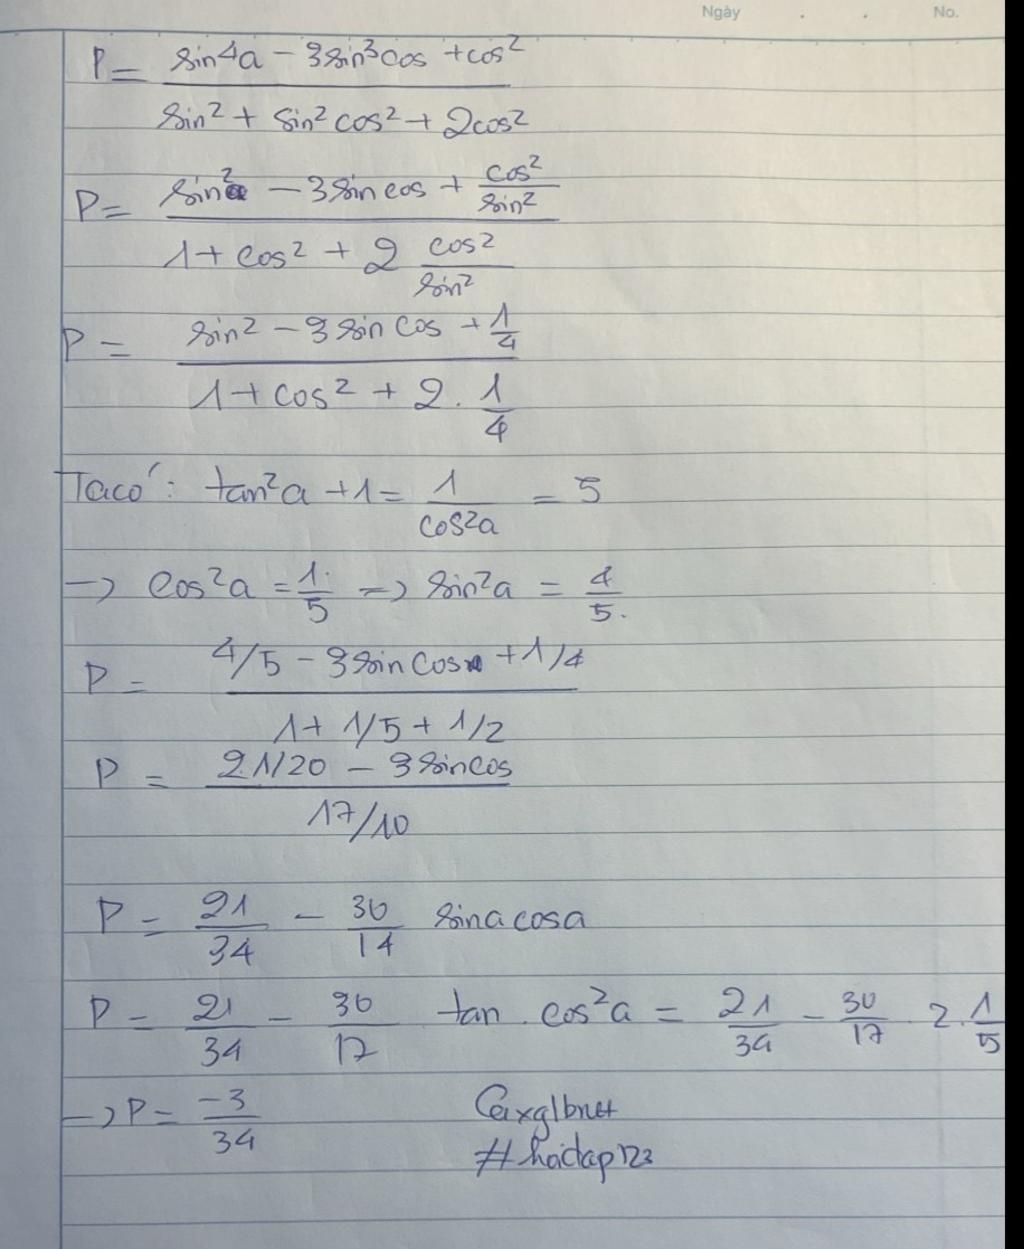 Ngày . . No.
P = (sin4a - 3sin³cos + cos²) / (sin² + sin²cos² + 2cos²)
P = (sin² - 3sincos + cos²/sin²) / (1 + cos² + 2 cos²/sin²)
P = (sin² - 3sincos + 1/4) / (1 + cos² + 2.1/4)
Ta có: tan²a + 1 = 1/cos²a = 5
→ cos²a = 1/5 => sin²a = 4/5.
P = (4/5 - 3sincos + 1/4) / (1 + 1/5 + 1/2)
P = (21/20 - 3sincos) / (17/10)
P = 21/34 - 30/14 sinacosa
P = 21/34 - 30/17 tan . cos²a = 21/34 - 30/17 2.1/5
→ P = -3/34
#hoidap123